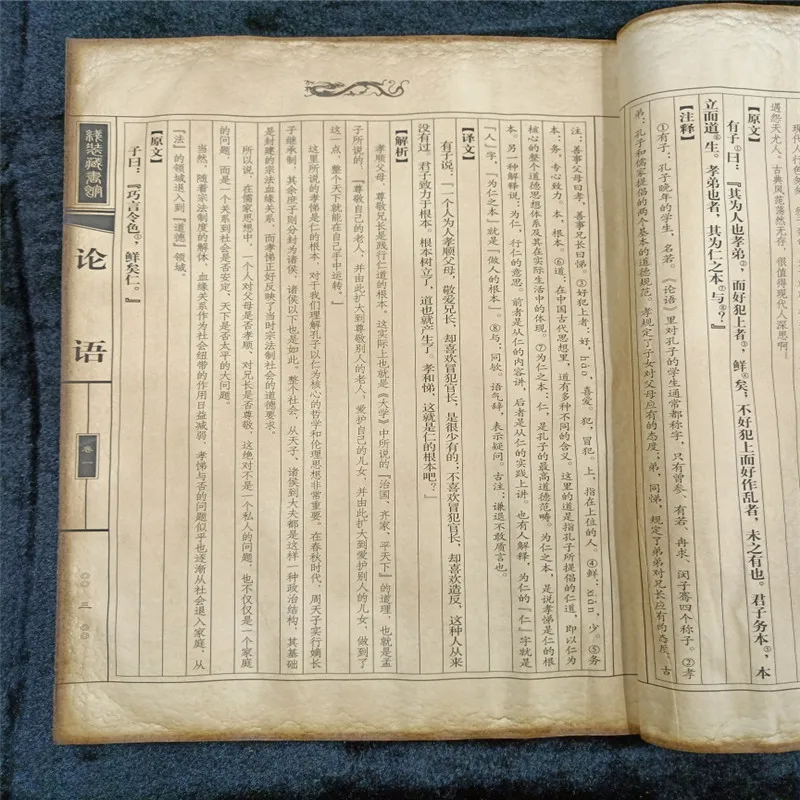 遇怨天尤人、古典风范荡然无存，很值得现代人深思啊！
【原文】
有子①曰：“其为人也孝弟②，而好犯上者③，鲜④矣；不好犯上而好作乱者，未之有也。君子务本⑤，本
立而道⑥生。孝弟也者，其为仁之本⑦与⑧？”
【注释】
①有子：孔子晚年的学生，名若。《论语》里对孔子的学生通常都称字，只有曾参、有若、冉求、闵子骞四个称子。②孝
弟：孔子和儒家提倡的两个基本的道德规范。孝规定了子女对父母应有的态度；弟，同悌，规定了弟弟对兄长应有的态度。古
注：善事父母曰孝，善事兄长曰悌。③好犯上者：好，hào，喜爱。犯，冒犯。上，指在上位的人。④鲜：xiǎn，少。⑤务
本：务，专心致力。本，根本。⑥道：在中国古代思想里，道有多种不同的含义。这里的道是指孔子所提倡的仁道，即以仁为
核心的整个道德思想体系及其在实际生活中的体现。⑦为仁之本：仁，是孔子的最高道德范畴。为仁之本，是说孝悌是仁的根
本。另一种解释说：为仁，行仁的意思。前者是从仁的内容讲，后者是从仁的实践上讲。也有人解释，为仁的“仁”字就是
“人”字，“为仁之本”就是“做人的根本”。⑧与：同欤。语气辞，表示疑问。古注：谦退不敢质言也。
【译文】
有子说：“一个人为人孝顺父母，敬爱兄长，却喜欢冒犯官长，是很少有的；不喜欢冒犯官长，却喜欢造反，这种人从来
没有过。君子致力于根本。根本树立了，道也就产生了。孝和悌，这就是仁的根本吧？”
【解析】
孝顺父母，尊敬兄长是践行仁道的根本。这实际上也就是《大学》中所说的“治国、齐家、平天下”的道理，也就是孟
子所说的，“尊敬自己的老人，并由此扩大到尊敬别人的老人，爱护自己的儿女，并由此扩大到爱护别人的儿女，做到了
这一点，整个天下就能在自己手中运转。”
这里所说的孝悌是仁的根本，对于我们理解孔子以仁为核心的哲学和伦理思想非常重要。在春秋时代，周天子实行嫡长
子继承制，其余庶子则分封为诸侯，诸侯以下也是如此。整个社会，从天子、诸侯到大夫都是这样一种政治结构，其基础
是封建的宗法血缘关系，而孝悌正好反映了当时宗法制社会的道德要求。
所以说，在儒家思想中，一个人对父母是否孝顺、对兄长是否尊敬，这绝对不是一个私人的问题，也不仅仅是一个家庭
的问题，而是一个关系到社会是否安定、天下是否太平的大问题。
当然，随着宗法制度的解体，血缘关系作为社会纽带的作用日益减弱，孝悌与否的问题似乎也逐渐从社会退入家庭，从
“法”的领域退入到“道德”领域。
【原文】
子曰：“巧言令色①，鲜矣仁。”
线装藏书馆
论语
卷一
〇〇三